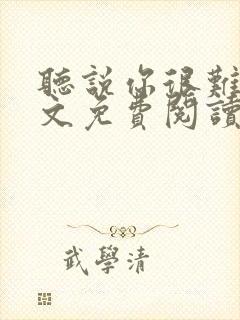 聽說你很難
文免費閱讀
武學清